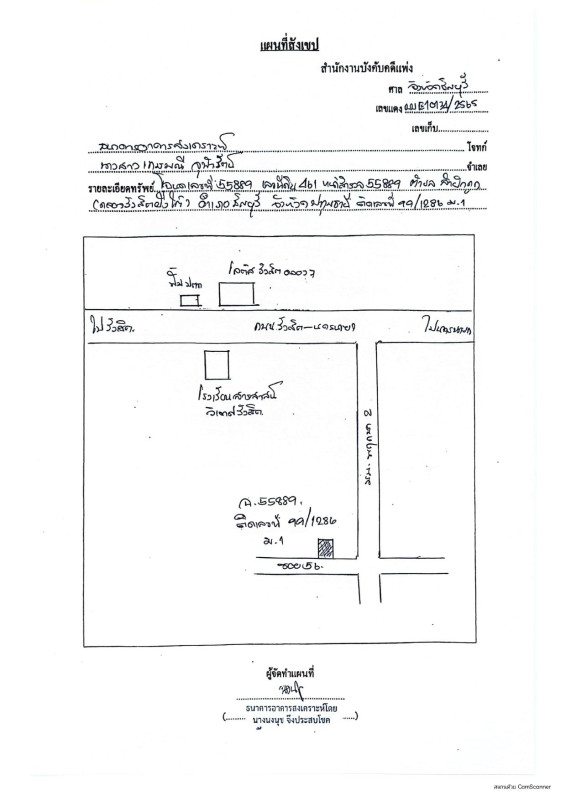 แผนที่สังเขป
สำนักงานบังคับคดีแพ่ง
ศาล จังหวัดธัญบุรี
เลขแดง ผบE10134/2565
เลขเก็บ....................
ธนาคารอาคารสงเคราะห์ โจทก์
นางสาว จำเลย
รายละเอียดทรัพย์ โฉนดเลขที่ 55889 เลขที่ดิน 461 หน้าสำรวจ 55889 ตำบล ลำผักกูด
(คลองรังสิตฝั่งใต้) อำเภอ ธัญบุรี จังหวัด ปทุมธานี ติดเลขที่ 99/1286 ม.1
โลตัส รังสิต
ปั๊ม ปตท
ไปรังสิต
ถนน รังสิต-นครนายก
ไปนครนายก
โรงเรียนสารสาสน์
วิเทศรังสิต
ฉ.55889.
ติดเลขที่ 99/1286
ม.1
ซอย 56.
ผู้จัดทำแผนที่
ธนาคารอาคารสงเคราะห์โดย
(........ นางนงนุช จึงประสบโชค .....)
สแกนด้วย CamScanner